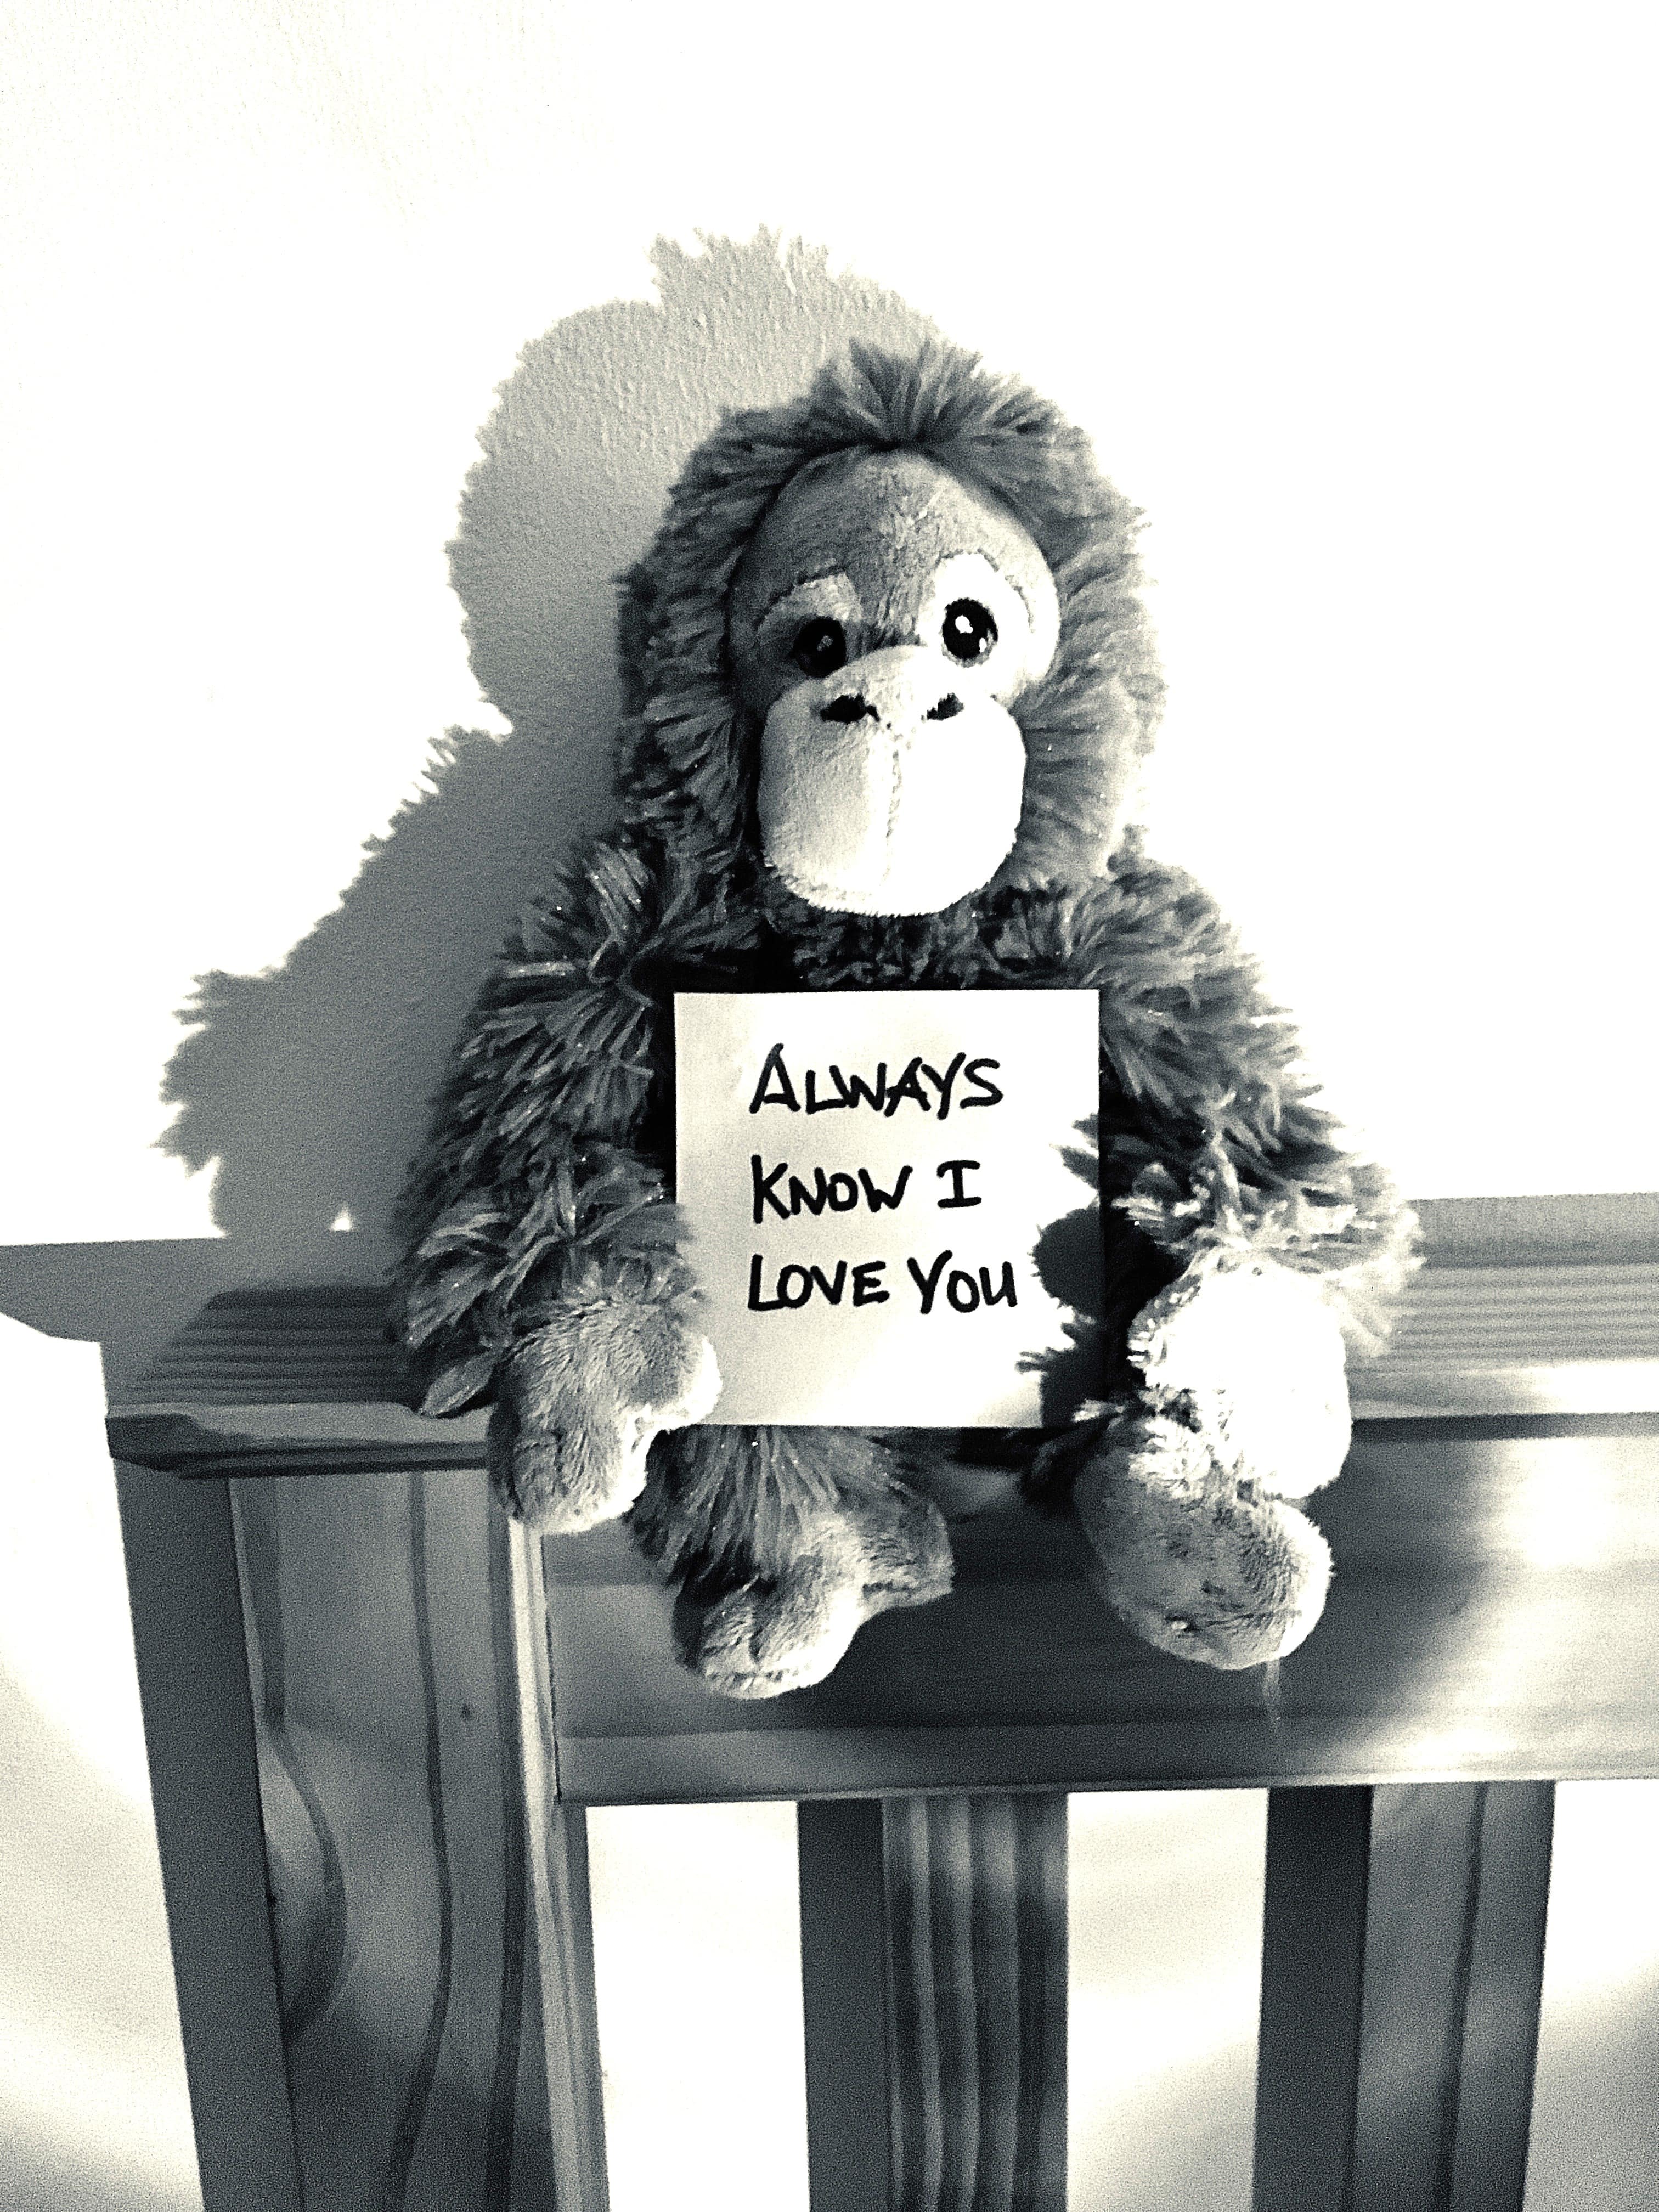 ALWAYS
KNOW I
LOVE YOU